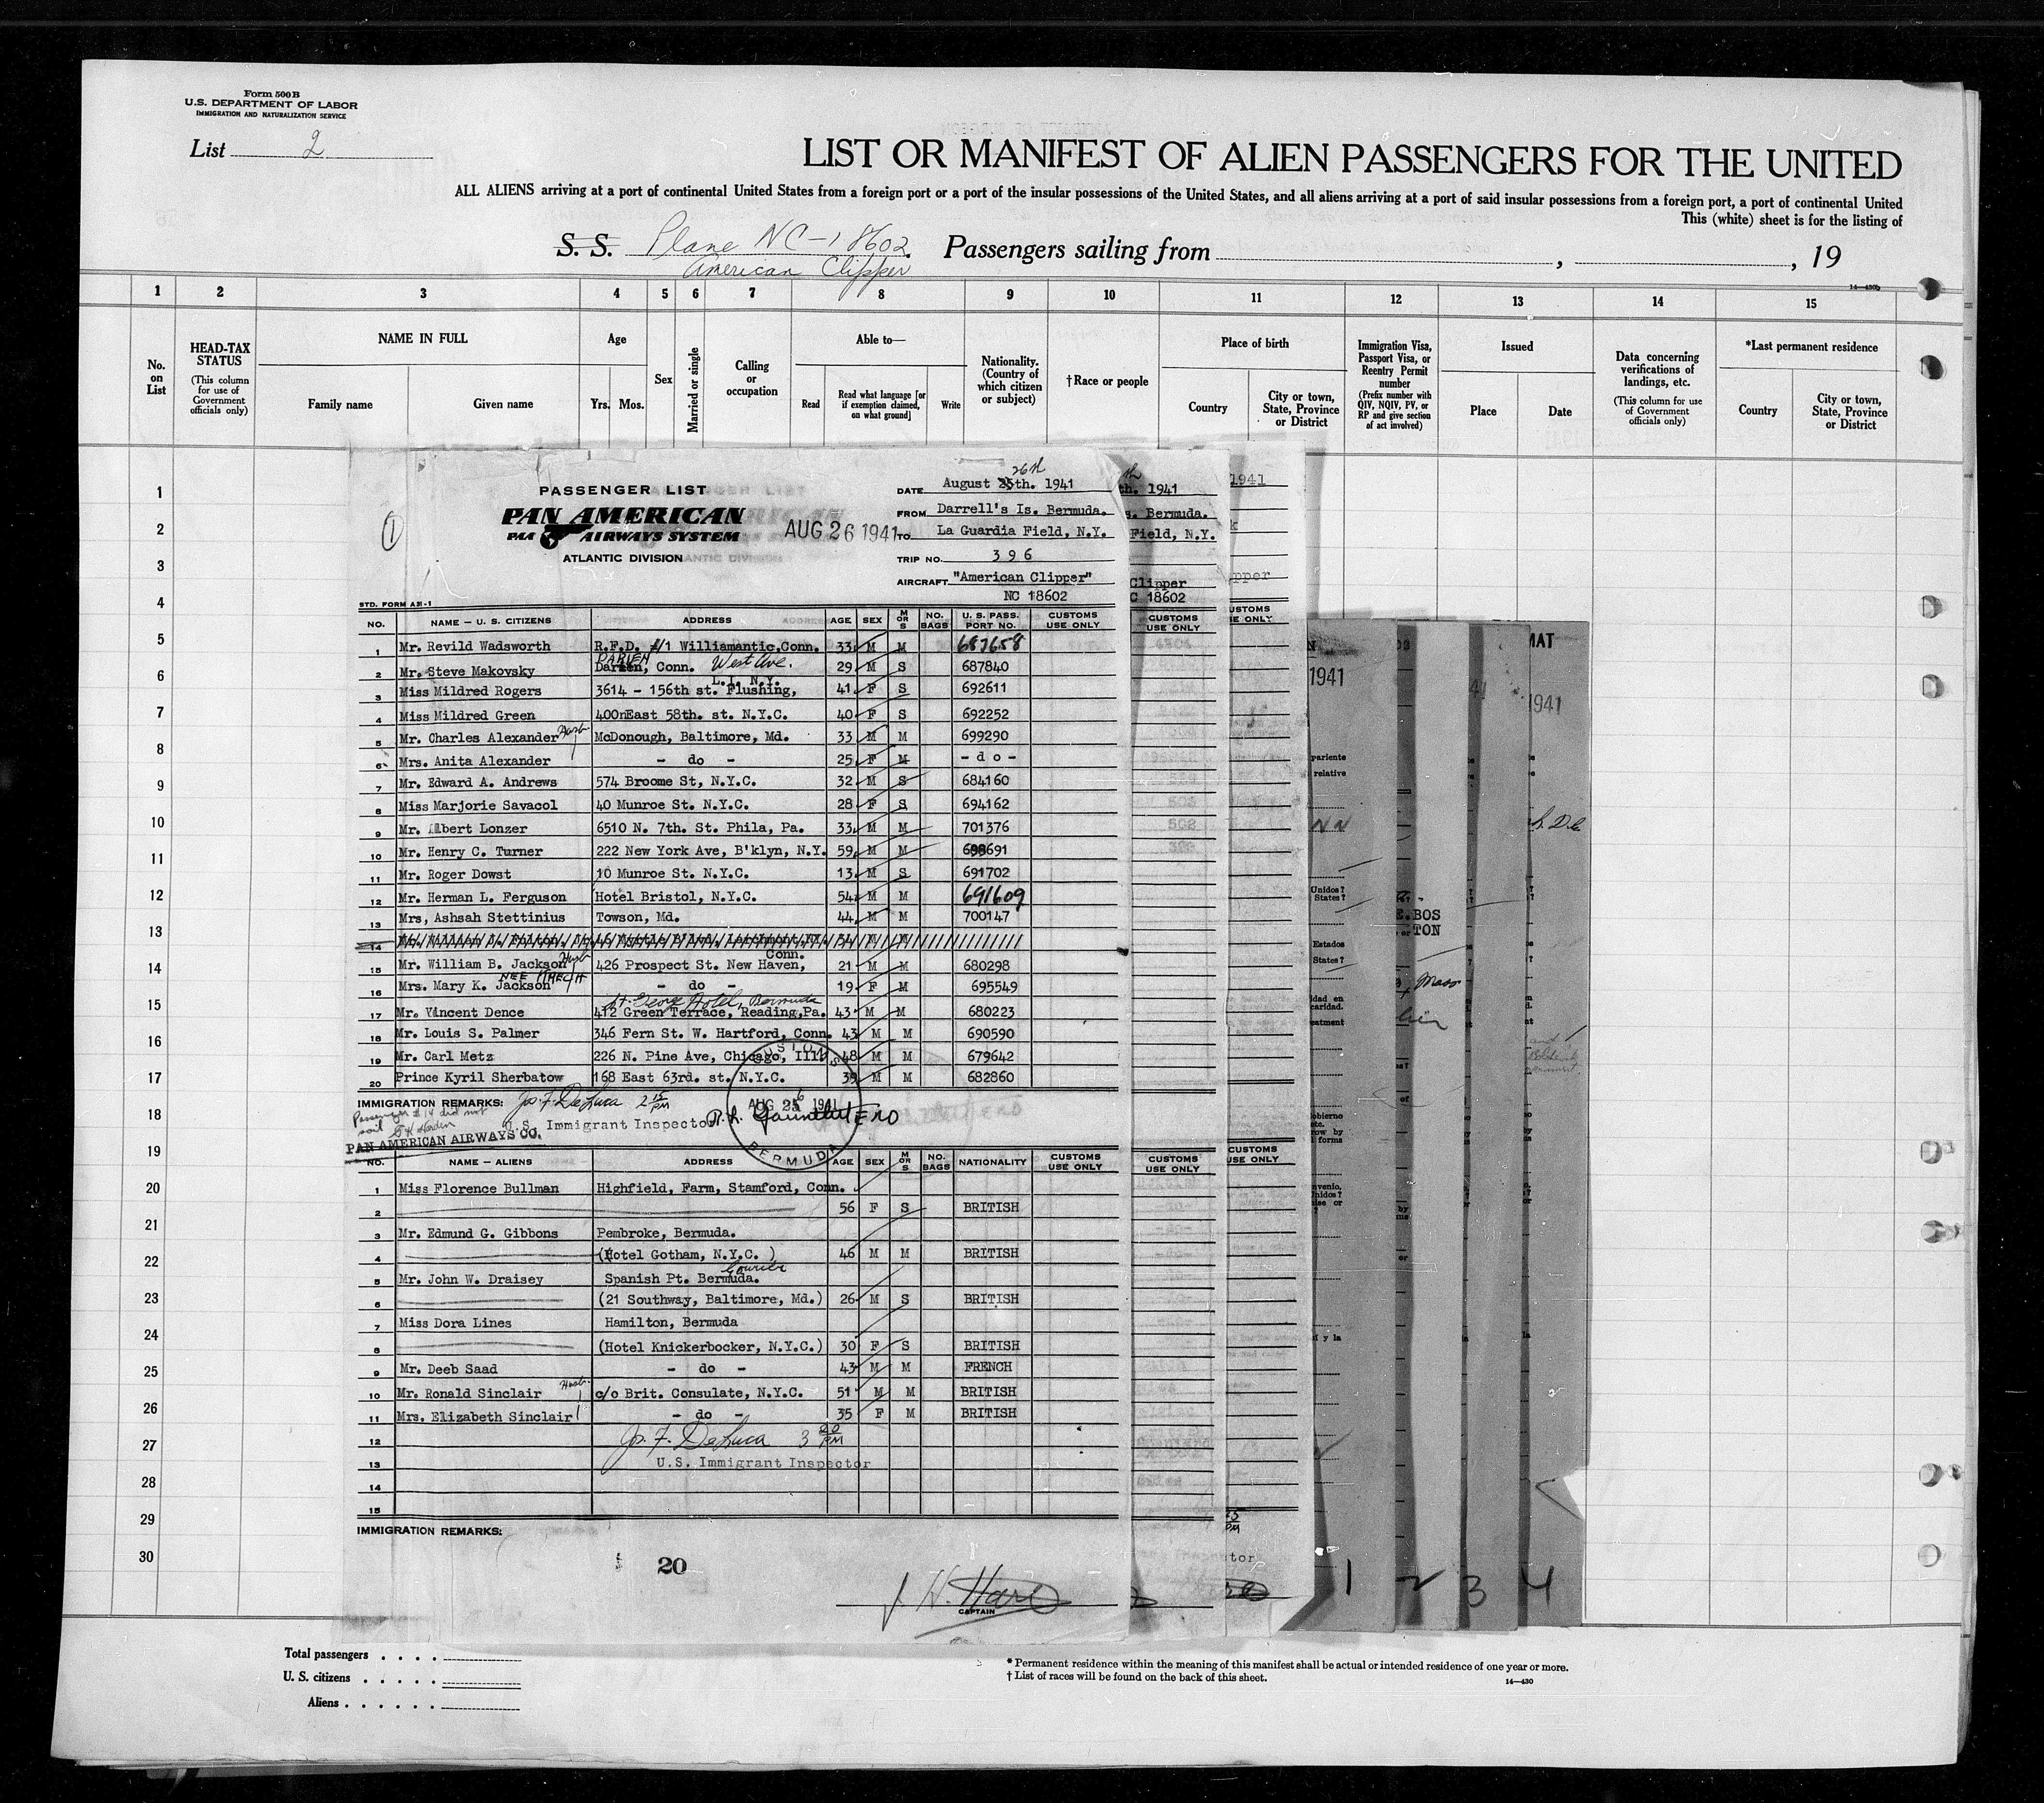 Form 500 B
U.S. DEPARTMENT OF LABOR
IMMIGRATION AND NATURALIZATION SERVICE
List 2
LIST OR MANIFEST OF ALIEN PASSENGERS FOR THE UNITED
ALL ALIENS arriving at a port of continental United States from a foreign port or a port of the insular possessions of the United States, and all aliens arriving at a port of said insular possessions from a foreign port, a port of continental United
This (white) sheet is for the listing of
S. S. Plane NC-18602 Passengers sailing from , , 19
American Clipper
14—430b
1 2 3 4 5 6 7 8 9 10 11 12 13 14 15
No. on List
HEAD-TAX STATUS
(This column for use of Government officials only)
NAME IN FULL
Family name Given name
Age
Yrs. Mos.
Sex
Married or single
Calling or occupation
Able to—
Read
Read what language [or if exemption claimed, on what ground]
Write
Nationality. (Country of which citizen or subject)
†Race or people
Place of birth
Country
City or town, State, Province or District
Immigration Visa, Passport Visa, or Reentry Permit number
(Prefix number with QIV, NQIV, PV, or RP and give section of act involved)
Issued
Place Date
Data concerning verifications of landings, etc.
(This column for use of Government officials only)
*Last permanent residence
Country
City or town, State, Province or District
1
2
3
4
5
6
7
8
9
10
11
12
13
14
15
16
17
18
19
20
21
22
23
24
25
26
27
28
29
30
1
PASSENGER LIST
PAN AMERICAN
PAA AIRWAYS SYSTEM
ATLANTIC DIVISION
AUG 26 1941
26th
DATE August 25th. 1941
FROM Darrell's Is. Bermuda.
TO La Guardia Field, N.Y.
TRIP NO. 396
AIRCRAFT "American Clipper"
NC 18602
STD. FORM A31-1
NO. NAME — U. S. CITIZENS ADDRESS AGE SEX M OR S NO. BAGS U. S. PASS. PORT NO. CUSTOMS USE ONLY
1 Mr. Revild Wadsworth R.F.D. #/1 Williamantic,Conn. 33 M M 687658
DARIEN West Ave.
2 Mr. Steve Makovsky Darien, Conn. 29 M S 687840
L.I. N.Y.
3 Miss Mildred Rogers 3614 - 156th st. Flushing, 41 F S 692611
4 Miss Mildred Green 400nEast 58th. st. N.Y.C. 40 F S 692252
5 Mr. Charles Alexander Husb. McDonough, Baltimore, Md. 33 M M 699290
6 Mrs. Anita Alexander - do - 25 F M - d o -
7 Mr. Edward A. Andrews 574 Broome St, N.Y.C. 32 M S 684160
8 Miss Marjorie Savacol 40 Munroe St. N.Y.C. 28 F S 694162
9 Mr. Albert Lonzer 6510 N. 7th. St. Phila, Pa. 33 M M 701376
10 Mr. Henry C. Turner 222 New York Ave, B'klyn, N.Y. 59 M M 698691
11 Mr. Roger Dowst 10 Munroe St. N.Y.C. 13 M S 691702
12 Mr. Herman L. Ferguson Hotel Bristol, N.Y.C. 54 M M 691609
13 Mrs, Ashsah Stettinius Towson, Md. 44 M M 700147
14 Mr. William J. Fulton, Jr. 34 M M
Conn.
15 Mr. William B. Jackson Husb 426 Prospect St. New Haven, 21 M M 680298
16 Mrs. Mary K. Jackson - do - 19 F M 695549
St. George Hotel, Bermuda
17 Mr. Vincent Dence 412 Green Terrace, Reading,Pa. 43 M M 680223
18 Mr. Louis S. Palmer 346 Fern St. W. Hartford, Conn. 43 M M 690590
19 Mr. Carl Metz 226 N. Pine Ave, Chicago, Ill. 48 M M 679642
20 Prince Kyril Sherbatow 168 East 63rd. st. N.Y.C. 39 M M 682860
IMMIGRATION REMARKS: Jos. F. DeLuca 2 15 PM
Passenger #14 did not
sail
U.S. Immigrant Inspector
PAN AMERICAN AIRWAYS CO.
CUSTOMS
AUG 26 1941
BERMUDA
NO. NAME — ALIENS ADDRESS AGE SEX M OR S NO. BAGS NATIONALITY CUSTOMS USE ONLY
1 Miss Florence Bullman Highfield, Farm, Stamford, Conn.
2 56 F S BRITISH
3 Mr. Edmund G. Gibbons Pembroke, Bermuda.
4 (Hotel Gotham, N.Y.C. ) 46 M M BRITISH
Courier
5 Mr. John W. Draisey Spanish Pt. Bermuda.
6 (21 Southway, Baltimore, Md.) 26 M S BRITISH
7 Miss Dora Lines Hamilton, Bermuda
8 (Hotel Knickerbocker, N.Y.C.) 30 F S BRITISH
9 Mr. Deeb Saad - do - 43 M M FRENCH
10 Mr. Ronald Sinclair Husb. c/o Brit. Consulate, N.Y.C. 51 M M BRITISH
11 Mrs. Elizabeth Sinclair - do - 35 F M BRITISH
12 Jos. F. DeLuca 3 20 PM
13 U.S. Immigrant Inspector
14
15
IMMIGRATION REMARKS:
20
J. H. Hare
CAPTAIN
th. 1941
s. Bermuda.
Field, N.Y.
Clipper
C 18602
CUSTOMS USE ONLY
1941
pper
1941
1941
E.BOS
TON
Mass
1 2 3 4
Total passengers
U. S. citizens
Aliens
* Permanent residence within the meaning of this manifest shall be actual or intended residence of one year or more.
† List of races will be found on the back of this sheet.
14—430